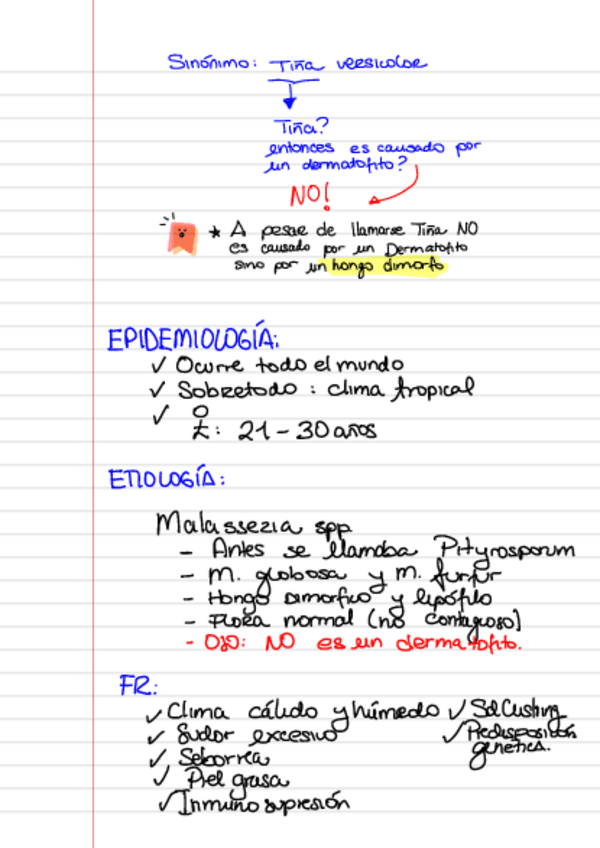 Sinónimo: Tiña versicolor
Tiña?
entonces es causado por
un dermatofito?
NO!
* A pesar de llamarse Tiña NO
es causado por un Dermatofito
sino por un hongo dimorfo
EPIDEMIOLOGÍA:
✓ Ocurre todo el mundo
✓ Sobretodo : clima tropical
✓ ♀: 21 - 30 años
ETIOLOGÍA:
Malassezia spp
- Antes se llamaba Pityrosporum
- M. globosa y M. furfur
- Hongo Dimorfico y lipófilo
- Flora normal (no contagioso)
- OJO: NO es un dermatofito.
FR:
✓ Clima cálido y húmedo ✓ Sd Cushing
✓ Sudor excesivo ✓ Predisposición
genética.
✓ Seborrea
✓ Piel grasa
✓ Inmunosupresión